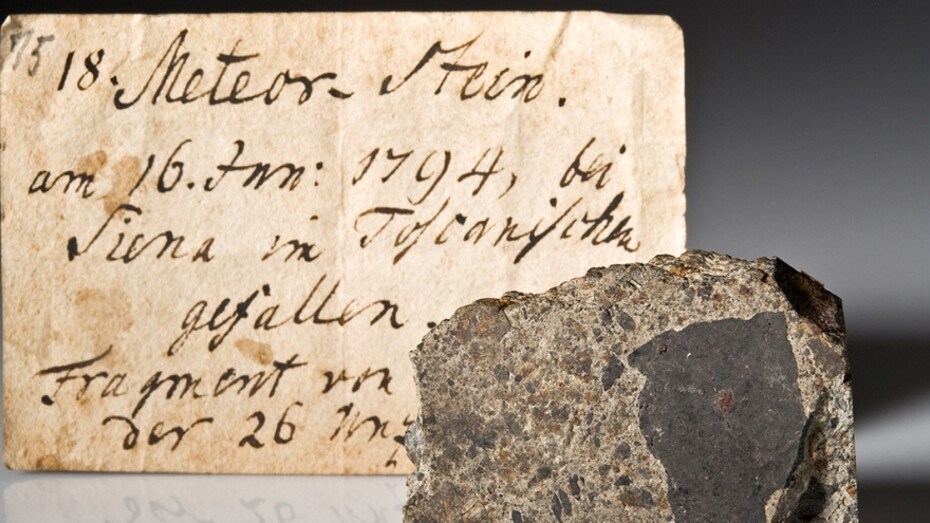 75
18. Meteor-Stein.
am 16. Jun: 1794, bei
Siena im Toscanischen
gefallen.
Fragment von
der 26